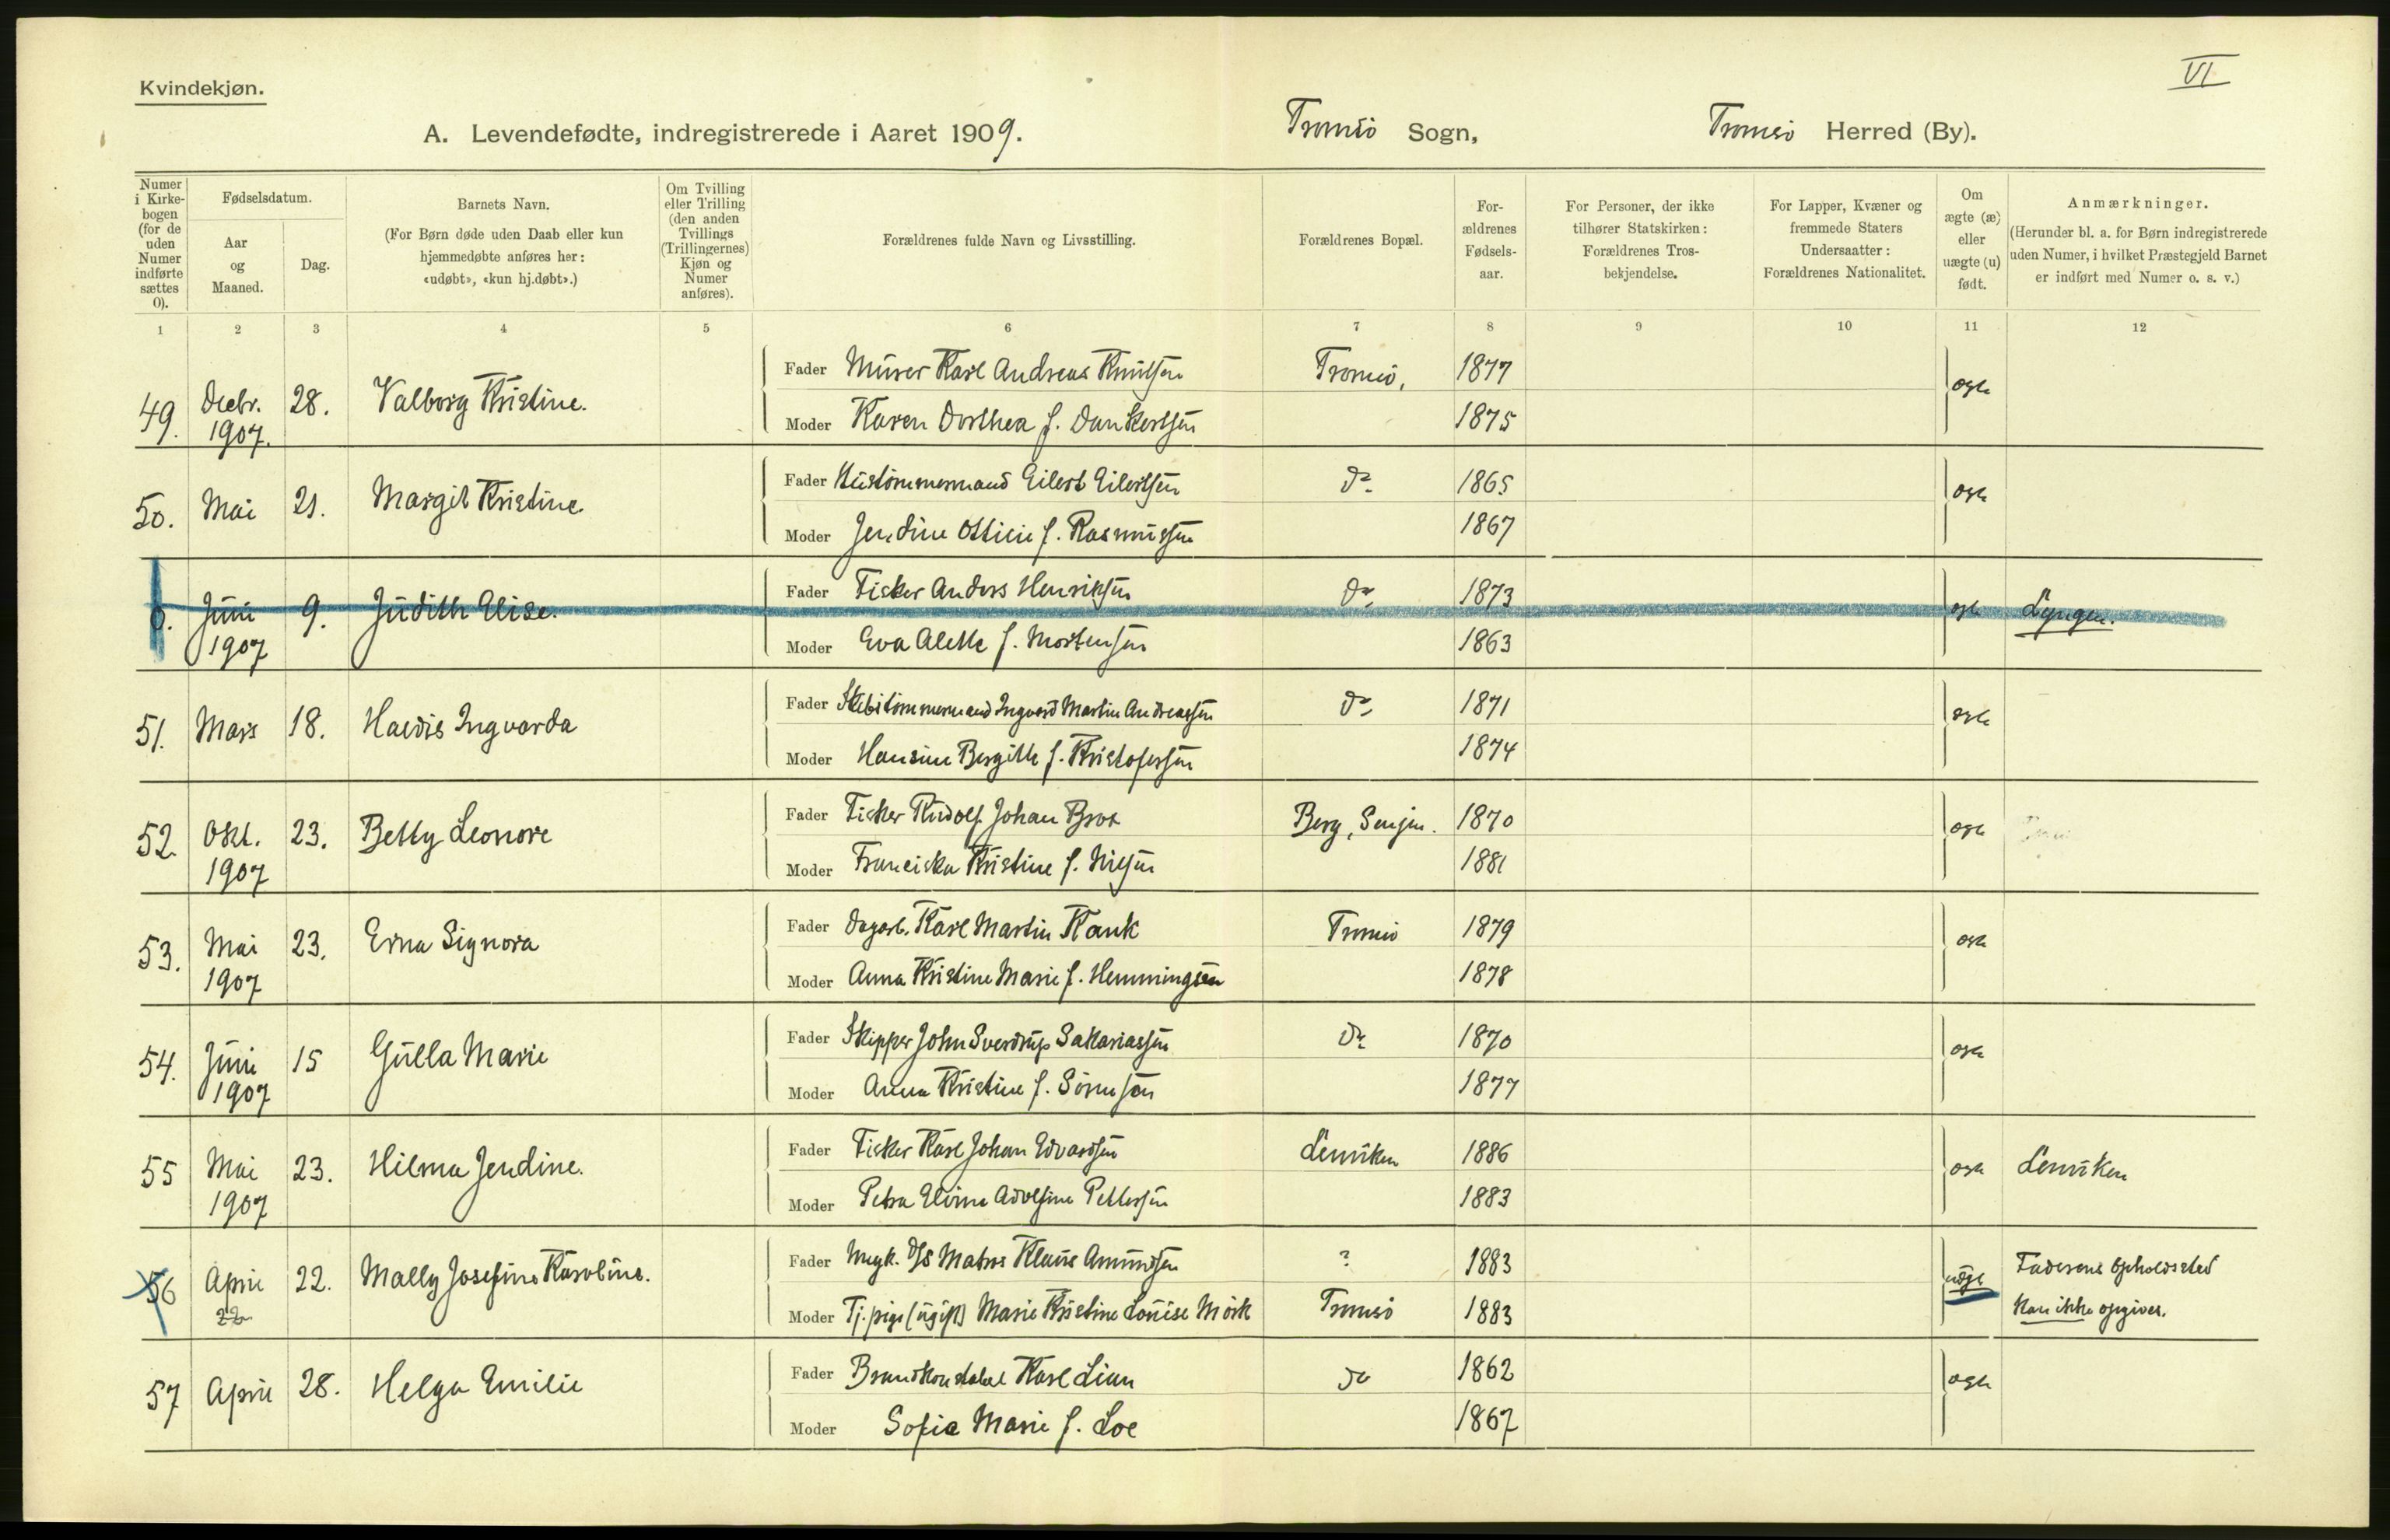 VI
Kvindekjøn.
A. Levendefødte, indregistrerede i Aaret 1909. Tromsö Sogn, Tromsö Herred (By).
Numer i Kirkebogen (for de uden Numer indførte sættes 0).
Fødselsdatum.
Aar og Maaned.
Dag.
Barnets Navn.
(For Børn døde uden Daab eller kun
hjemmedøbte anføres her:
«udøbt», «kun hj.døbt».)
Om Tvilling
eller Trilling
(den anden
Tvillings
(Trillingernes)
Kjøn og
Numer
anføres).
Forældrenes fulde Navn og Livsstilling.
Forældrenes Bopæl.
For-
ældrenes
Fødsels-
aar.
For Personer, der ikke
tilhører Statskirken:
Forældrenes Tros-
bekjendelse.
For Lapper, Kvæner og
fremmede Staters
Undersaatter:
Forældrenes Nationalitet.
Om
ægte (æ)
eller
uægte (u)
født.
Anmærkninger.
(Herunder bl. a. for Børn indregistrerede
uden Numer, i hvilket Præstegjeld Barnet
er indført med Numer o. s. v.)
1 2 3 4 5 6 7 8 9 10 11 12
49. Decbr. 28. Valborg Kristine. Fader Murer Karl Andreas Knutsen Tromsö, 1877
1907. Moder Karen Dorthea f. Dankertsen 1875
50. Mai 21. Margit Kristine Fader Hustömmermand Eilert Eilertsen do 1865
Moder Jendine f. Rasmussen 1867
0. Juni 9. Judith Elise. Fader Fisker Anders Henriksen do 1873 Lyngen.
1907 Moder Eva Alette f. Mortensen 1863
51. Mars 18. Ingvarda Fader Skibstömmermand Ingvard Martin Andreassen do 1871
Moder Hansine Bergitte f. Kristofersen 1874
52. Okt. 23. Betty Leonore Fader Fisker Rudolf Johan Brox Berg, Senjen. 1870
1907 Moder Franciska Kristine f. Nilsen 1881
53. Mai 23. Erna Signora Fader Dagarb. Karl Martin Kank Tromsö 1879
1907 Moder Anna Kristine Marie f. Hemmingsen 1878
54. Juni 15 Gulla Marie Fader Skipper John Sverdrup Sakariassen do 1870
1907 Moder Anna Kristine f. Sörensen 1877
55 Mai 23. Hilma Jendine. Fader Fisker Karl Johan Edvardsen Lenviken 1886 Lenviken
1907 Moder Petra Adolfine Pettersen 1883
56 April 22. Mally Josefine Karoline. Fader Matros Klaus Amundsen ? 1883 Faderens Opholdssted
22 Moder Tj.pige (ugift) Marie Kristine Louise Mörk Tromsö 1883 kan ikke opgives.
57 April 28. Helga Emilie Fader Brandkonstabel Karl Lian do 1862
Moder Sofie Marie f. Loe 1867